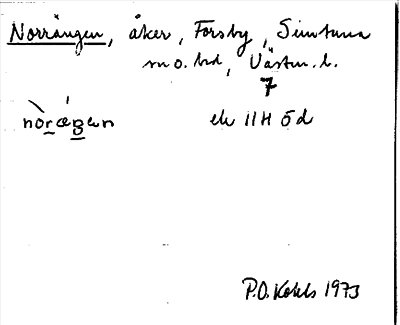 Norrängen, åker, Forsby, Simtuna
sn o. hd, Västm. l.
7
noræŋen ek 11H 5d
P.O. Kohls 1973